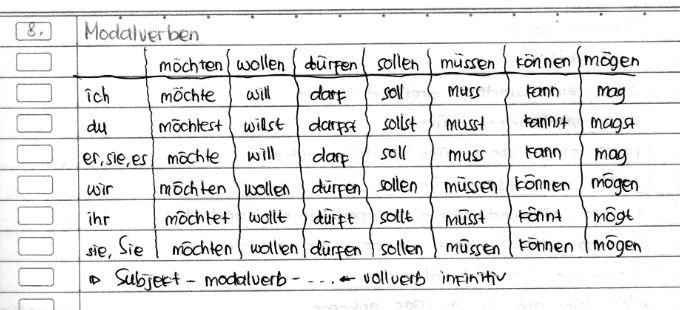 8. Modalverben
möchten wollen dürfen sollen müssen können mögen
ich möchte will darf soll muss kann mag
du möchtest willst darfst sollst musst kannst magst
er, sie, es möchte will darf soll muss kann mag
wir möchten wollen dürfen sollen müssen können mögen
ihr möchtet wollt dürft sollt müsst könnt mögt
sie, Sie möchten wollen dürfen sollen müssen können mögen
⇨ Subjekt - modalverb - .... ← vollverb infinitiv